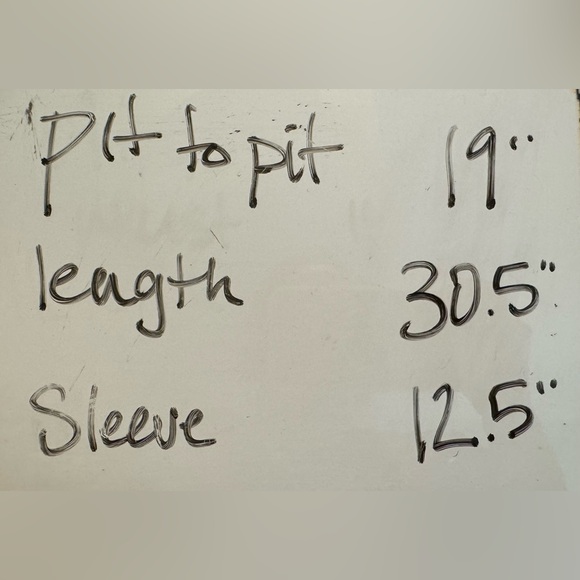 Pit to pit 19"
length 30.5"
Sleeve 12.5"